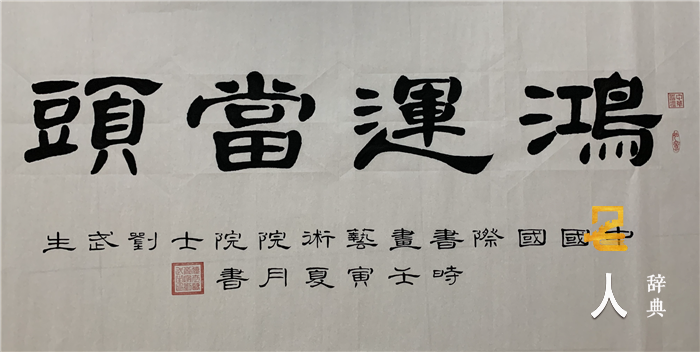 鴻運當頭
中國國際書畫藝術院院士劉武生
時壬寅夏月書
人
辞典